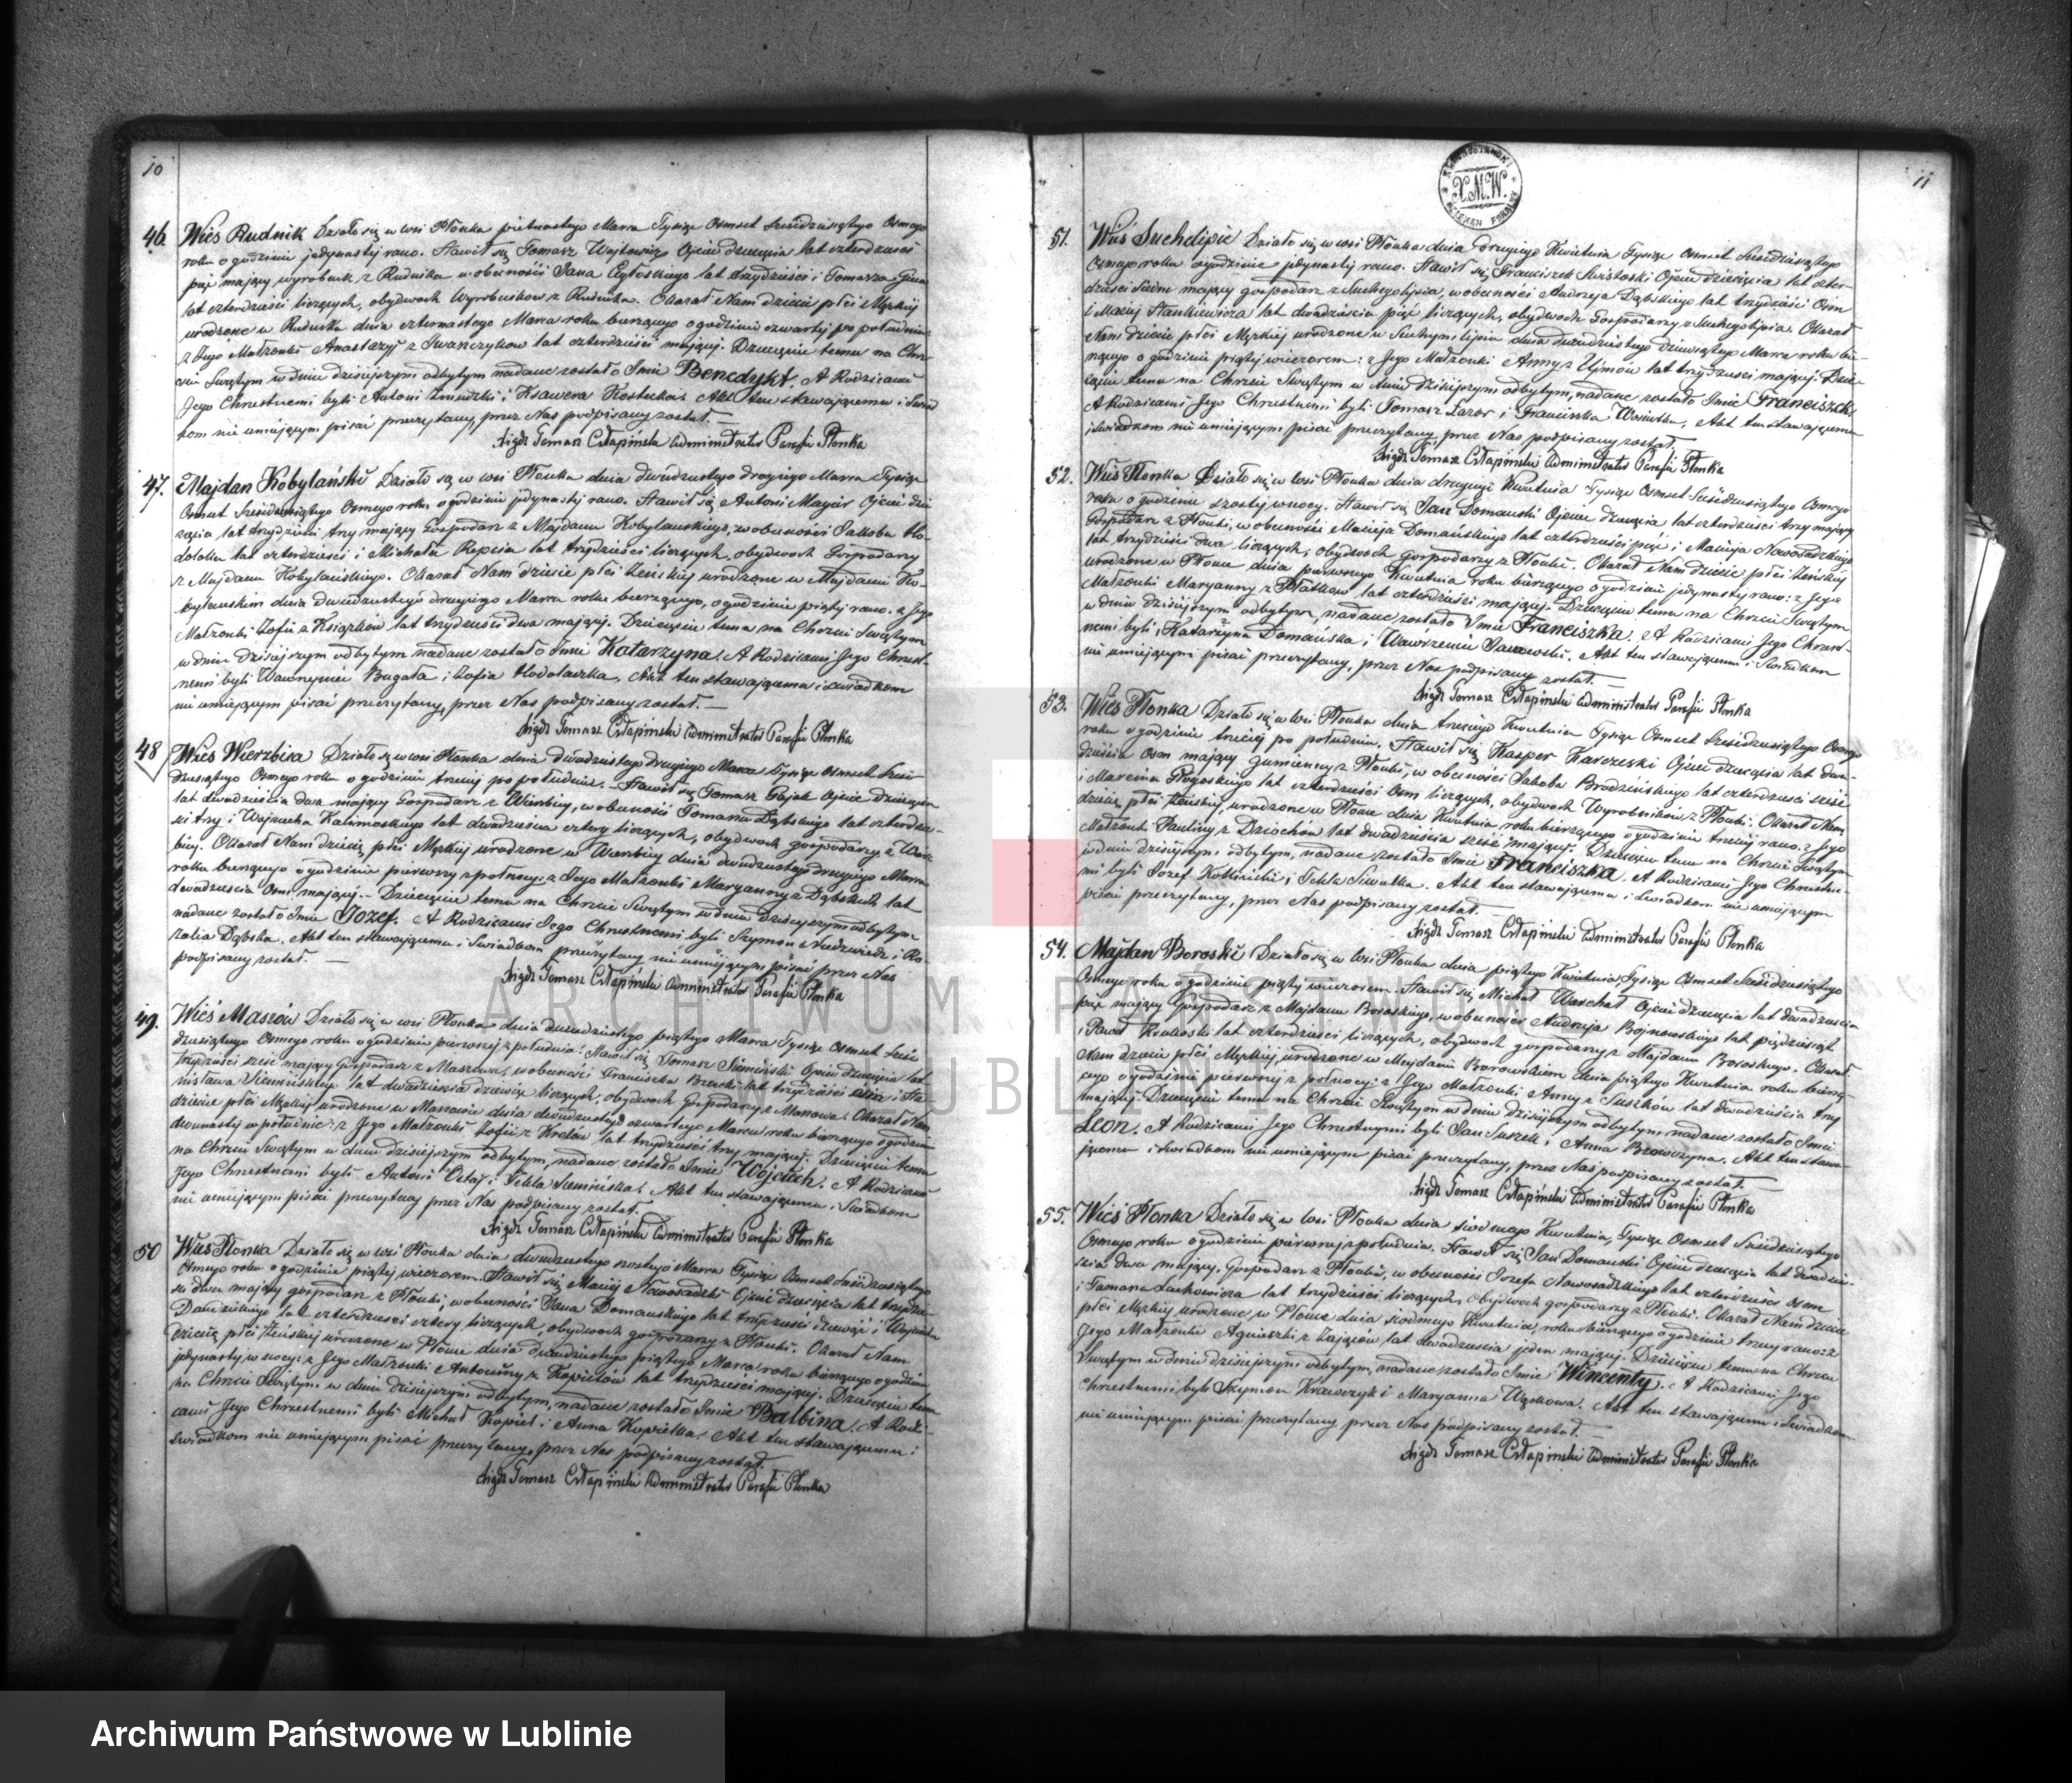 10
46. Wieś Rudnik Działo się w wsi Płonka piętnastego Marca Tysiąc Osmset Sześćdziesiątego Osmego
roku o godzinie jedynastej rano. Stawił się Tomasz Wojtowicz Ojciec dziecięcia lat czterdzieści
pięć mający wyrobnik z Rudnika w obecności Jana lat trzydzieści i Tomasza
lat czterdzieści liczących, obydwóch Wyrobników z Rudnika. Okazał Nam dziecie płci Męzkiej
urodzone w Rudniku dnia czternastego Marca roku bieżącego o godzinie czwartej po południu
z Jego Małżonki Anastazyi z Iwanczyków lat czterdzieści mającej. Dziecięciu temu na Chrz-
cie Świętym w dniu dzisiejszym odbytym nadane zostało Imie Benedykt. A Rodzicami
Jego Chrzestnemi byli Antoni i Ksawera Kostecka. Akt ten stawającemu i Świad
kom nie umiejącym pisać przeczytany, przez Nas podpisany został.
Xiądz Tomasz Człapiński Administrator Parafii Płonka
47. Majdan Kobylański Działo się w wsi Płonka dnia dwudziestego drugiego Marca Tysiąc
Osmset Sześćdziesiątego Osmego roku o godzinie jedynastej rano. Stawił się Antoni Mazur Ojciec dzie
cięcia lat trzydzieści trzy mający Gospodarz z Majdanu Kobylańskiego, w obecności Jakóba Ho-
dołoka lat czterdzieści i Michała Repecia lat trzydzieści liczących, obydwóch Gospodarzy
z Majdanu Kobylańskiego. Okazał Nam dziecie płci Żeńskiej urodzone w Majdanie Ko-
bylańskim dnia dwudziestego drugiego Marca roku bieżącego, o godzinie piątej rano. z Jego
Małżonki Zofii z Książków lat trzydzieści dwa mającej. Dziecięciu temu na Chrzcie Świętym
w dniu dzisiejszym odbytym nadane zostało Imie Katarzyna. A Rodzicami Jego Chrzest-
nemi byli Wawrzyniec Bugała i Zofia Hodołaczka. Akt ten stawającemu i Świadkom
nie umiejącym pisać przeczytany, przez Nas podpisany został.
Xiądz Tomasz Człapiński Administrator Parafii Płonka
48 Wieś Wierzbica Działo się w wsi Płonka dnia dwudziestego drugiego Marca Tysiąc Osmset Sześć-
dziesiątego Osmego roku o godzinie trzeciej po południu. Stawił się Tomasz Gajak Ojciec dziecięcia
lat dwadzieścia dwa mający Gospodarz z Wierzbicy, w obecności Tomasza Dąbskiego lat czterdzie-
ści trzy i Wojciecha Kalinoskiego lat dwadzieścia cztery liczących, obydwóch gospodarzy z Wierz
bicy. Okazał Nam dziecie płci Męzkiej urodzone w Wierzbicy dnia dwudziestego drugiego Marca
roku bieżącego o godzinie pierwszej z północy: z Jego Małżonki Maryanny z Dąbskich lat
dwadzieścia Osm mającej. Dziecięciu temu na Chrzcie Świętym w dniu dzisiejszym odbytym
nadane zostało Imie Jozef. A Rodzicami Jego Chrzestnemi byli Szymon Niedzwiedź i Ro-
zalia Dąbska. Akt ten stawającemu i Świadkom przeczytany nie umiejącym pisać przez Nas
podpisany został.
Xiądz Tomasz Człapiński Administrator Parafii Płonka
49. Wieś Maszów Działo się w wsi Płonka dnia dwudziestego piątego Marca Tysiąc Osmset Sześć
dziesiątego Osmego roku o godzinie pierwszej z południa. Stawił się Tomasz Siemiński Ojciec dziecięcia lat
trzydzieści sześć mający Gospodarz z Maszowa, w obecności Franciszka lat trzydzieści i Sta-
nisława Siemińskiego lat dwadzieścia dziewięć liczących, obydwóch Gospodarzy z Maszowa. Okazał Nam
dziecie płci Męzkiej urodzone w Maszowie dnia dwudziestego czwartego Marca roku bieżącego o godzinie
dwunastej w południe: z Jego Małżonki Zofii z Królów lat trzydzieści trzy mającej. Dziecięciu temu
na Chrzcie Świętym w dniu dzisiejszym odbytym, nadane zostało Imie Wojciech. A Rodzicami
Jego Chrzestnemi byli Antoni i Tekla Siemińska. Akt ten stawającemu i Świadkom
nie umiejącym pisać przeczytany przez Nas podpisany został.
Xiądz Tomasz Człapiński Administrator Parafii Płonka
50 Wieś Płonka Działo się w wsi Płonka dnia dwudziestego szostego Marca Tysiąc Osmset Sześćdziesiątego
Osmego roku o godzinie piątej wieczorem. Stawił się Maciej Nawosadzki Ojciec dziecięcia lat trzydzie-
ści dwa mający gospodarz z Płonki, w obecności Jana Domańskiego lat trzydzieści dziewięć i Wojciecha
lat czterdzieści cztery liczących, obydwóch gospodarzy z Płonki. Okazał Nam
Dziecię płci Żeńskiej urodzone w Płonce dnia dwudziestego piątego Marca roku bieżącego o godzinie
jedynastej w nocy: z Jego Małżonki Antoniny z Kopielów lat trzydzieści mającej. Dziecięciu temu
na Chrzcie Świętym w dniu dzisiejszym odbytym, nadane zostało Imie Balbina. A Rodzi-
cami Jego Chrzestnemi byli Michał Kopiel i Anna Kopielka. Akt ten stawającemu i
Świadkom nie umiejącym pisać przeczytany, przez Nas podpisany został.
Xiądz Tomasz Człapiński Administrator Parafii Płonka
11
X.M.W.
51. Wieś Suchelipie Działo się w wsi Płonka dnia drugiego Kwietnia Tysiąc Osmset Sześćdziesiątego
Osmego roku o godzinie jedynastej rano. Stawił się Franciszek Ojciec dziecięcia lat czter-
dzieści siedm mający gospodarz z Suchegolipia, w obecności Andrzeja Dąbskiego lat trzydzieści Osm
i Maciej Stankiewicza lat dwadzieścia pięć liczących, obydwóch Gospodarzy z Suchegolipia. Okazał
Nam dziecie płci Męzkiej urodzone w Suchymlipiu dnia dwudziestego dziewiątego Marca roku bie-
żącego o godzinie piątej wieczorem: z Jego Małżonki Anny z Ujmów lat trzydzieści mającej. Dzie-
cięciu temu na Chrzcie Świętym w dniu dzisiejszym odbytym, nadane zostało Imie Franciszek.
A Rodzicami Jego Chrzestnemi byli Tomasz Łazor i Franciszka. Akt ten stawającemu
i Świadkom nie umiejącym pisać przeczytany przez Nas podpisany został.
Xiądz Tomasz Człapiński Administrator Parafii Płonka
52. Wieś Płonka Działo się w wsi Płonka dnia drugiego Kwietnia Tysiąc Osmset Sześćdziesiątego Osmego
roku o godzinie szostej w nocy. Stawił się Jan Domański Ojciec dziecięcia lat czterdzieści trzy mający
Gospodarz z Płonki, w obecności Macieja Domańskiego lat czterdzieści pięć i Macieja Nawosadzkiego
lat trzydzieści dwa liczących, obydwóch gospodarzy z Płonki. Okazał Nam dziecie płci Żeńskiej
urodzone w Płonce dnia pierwszego Kwietnia roku bieżącego o godzinie jedynastej rano: z Jego
Małżonki Maryanny z Płatków lat czterdzieści mającej. Dziecięciu temu na Chrzcie Świętym
w dniu dzisiejszym odbytym, nadane zostało Imie Franciszka. A Rodzicami Jego Chrzest-
nemi byli, Katarzyna Domańska i Wawrzeniec. Akt ten stawającemu i Świadkom
nie umiejącym pisać przeczytany, przez Nas podpisany został.
Xiądz Tomasz Człapiński Administrator Parafii Płonka
53. Wieś Płonka Działo się w wsi Płonka dnia trzeciego Kwietnia Tysiąc Osmset Sześćdziesiątego Osmego
roku o godzinie trzeciej po południu. Stawił się Kasper Karczeski Ojciec dziecięcia lat dwa-
dzieścia Osm mający gumienny z Płonki, w obecności Jakóba Brodzińskiego lat czterdzieści sześć
i Marcina Głogoskiego lat czterdzieści Osm liczących, obydwóch Wyrobników z Płonki. Okazał Nam
dziecię płci Żeńskiej, urodzone w Płonce dnia Kwietnia roku bieżącego o godzinie trzeciej rano. z Jego
Małżonki Pauliny z Dziochów lat dwadzieścia sześć mającej. Dziecięciu temu na Chrzcie Świętym
w dniu dzisiejszym odbytym, nadane zostało Imie Franciszka. A Rodzicami Jego Chrzestne-
mi byli Jozef i Tekla Siwatka. Akt ten stawającemu i Świadkom nie umiejącym
pisać przeczytany, przez Nas podpisany został.
Xiądz Tomasz Człapiński Administrator Parafii Płonka
54. Majdan Boroski Działo się w wsi Płonka dnia piątego Kwietnia, Tysiąc Osmset Sześćdziesiątego
Osmego roku o godzinie piątej wieczorem. Stawił się Michał Waschat Ojciec dziecięcia lat dwadzieścia
pięć mający Gospodarz z Majdanu Boroskiego, w obecności Andrzeja Bojnowskiego lat pięćdziesiąt
i Paweł Krukoski lat czterdzieści liczących, obydwóch gospodarzy z Majdanu Boroskiego. Okazał
Nam dziecie płci Męzkiej, urodzone w Majdanie Borowskiem dnia piątego Kwietnia roku bieżą-
cego o godzinie pierwszej z północy: z Jego Małżonki Anny z Suszków lat dwadzieścia trzy
mającej. Dziecięciu temu na Chrzcie Świętym w dniu dzisiejszym odbytym nadane zostało Imie
Leon. A Rodzicami Jego Chrzestnymi byli Jan Suszek i Anna. Akt ten stawa-
jącemu i Świadkom nie umiejącym pisać przeczytany, przez Nas podpisany został.
Xiądz Tomasz Człapiński Administrator Parafii Płonka
55. Wieś Płonka Działo się w wsi Płonka dnia siodmego Kwietnia, Tysiąc Osmset Sześćdziesiątego
Osmego roku o godzinie pierwszej z południa. Stawił się Jan Domański Ojciec dziecięcia lat dwadzie-
ścia dwa mający, Gospodarz z Płonki, w obecności Jozefa Nawosadzkiego lat czterdzieści Osm
i Tomasza Lachowicza lat trzydzieści liczących, obydwóch gospodarzy z Płonki. Okazał Nam dziecie
płci Męzkiej urodzone w Płonce dnia siodmego Kwietnia, roku bieżącego o godzinie trzeciej rano: z
Jego Małżonki Agnieszki z Zającow lat dwadzieścia jeden mającej. Dziecięciu temu na Chrzcie
Świętym w dniu dzisiejszym odbytym, nadane zostało Imie Wincenty. A Rodzicami Jego
Chrzestnemi byli Szymon Krawczyk i Maryanna. Akt ten stawającemu i Świadkom
nie umiejącym pisać, przeczytany przez Nas podpisany został.
Xiądz Tomasz Człapiński Administrator Parafii Płonka
ARCHIWUM PAŃSTWOWE
W LUBLINIE
Archiwum Państwowe w Lublinie